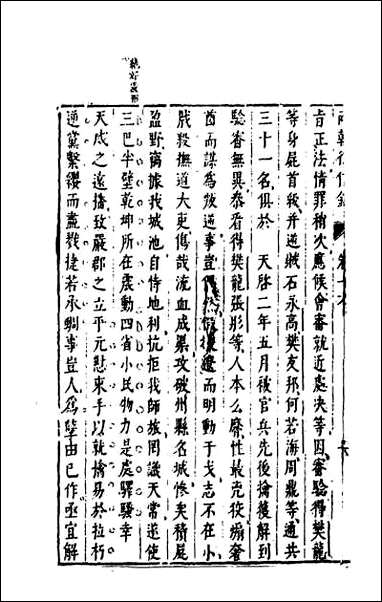 兩朝從信錄 卷十六
肯正法情罪稍久應候會審就近處決等因審驗得樊龍
等身屍首級并逆賊石永高樊友邦何若海周鼎等通共
三十一名俱於 天啓二年五月被官兵先後擒獲解到
驗審無異叅看得樊龍張彤等人本么麽性最兇狡煽奢
酋而謀為叛逆事豈假援遼而明動干戈志不在小
戕殺撫道大吏傷哉流血成渠攻破州縣名城慘矣積屍
盈野竊據我城池自恃地利抗拒我師旅罔識天常遂使
三巴半壁乾坤所在震動四省小民物力是處驛騷幸
天威之遠播致嚴郡之立平元憝束手以就擒易於拉朽
逆黨繫纓而盡戮捷若承蜩事豈人為孽由己作亟宜解